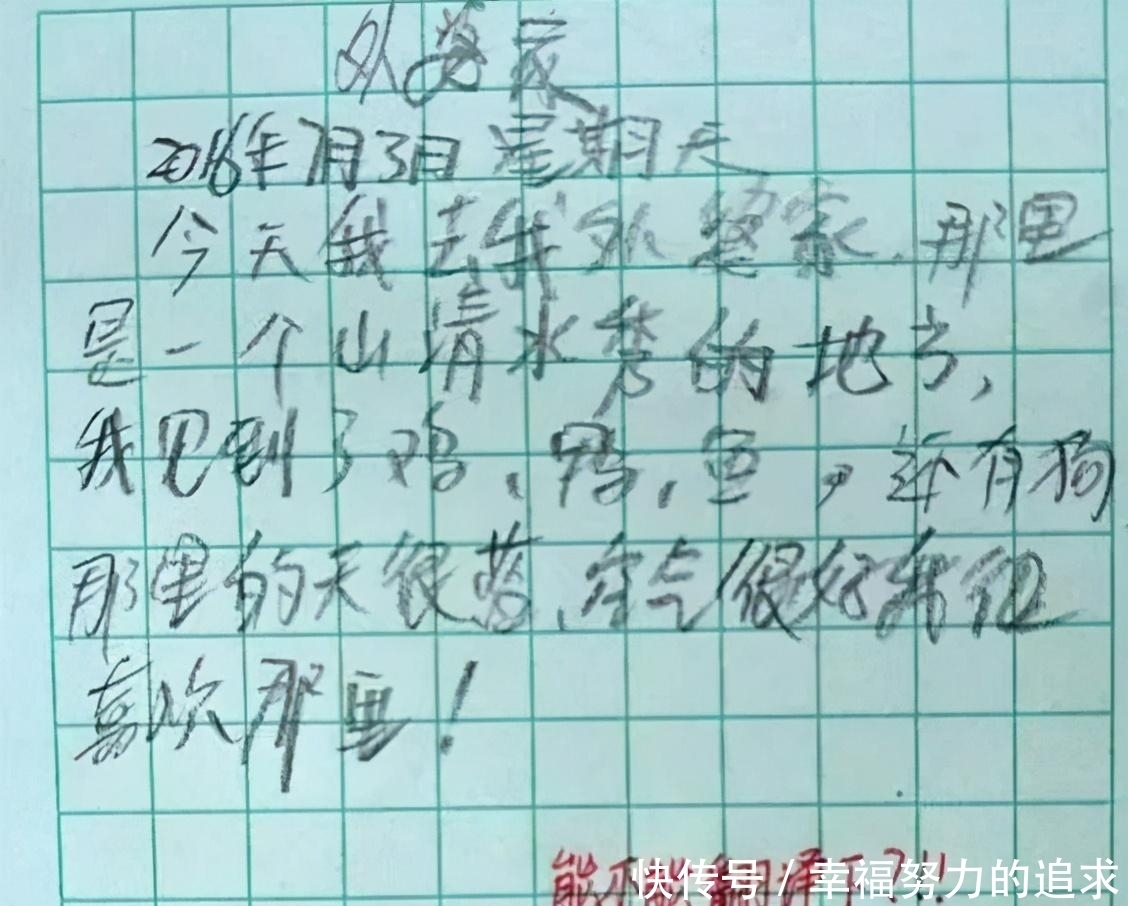 外婆家
2016年7月3日 星期天
今天我去我外婆家.那里
是一个山清水秀的地方,
我见到了鸡、鸭、鱼,还有狗
那里的天很蓝、空气很好我很
喜欢那里!
能不能
快传号 / 幸福努力的追求